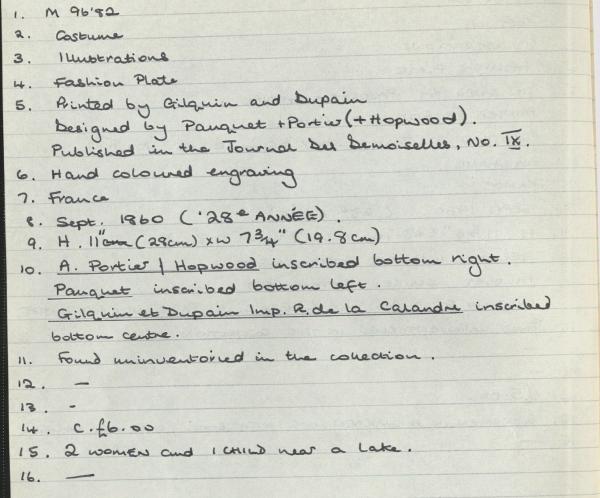 1. M 96'82
2. Costume
3. Illustrations
4. Fashion Plate
5. Printed by Gilquin and Dupain
Designed by Pauquet + Portier (+ Hopwood).
Published in the Journal Des Demoiselles, No. IX.
6. Hand coloured engraving
7. France
8. Sept. 1860 ('28e ANNÉE).
9. H. 11" (28cm) x W 7 3/4" (19.8cm)
10. A. Portier / Hopwood inscribed bottom right.
Pauquet inscribed bottom left.
Gilquin et Dupain Imp. R. de la Calandre inscribed
bottom centre.
11. Found uninventoried in the collection.
12. —
13. -
14. C. £6.00
15. 2 WOMEN and 1 CHILD near a lake.
16. —